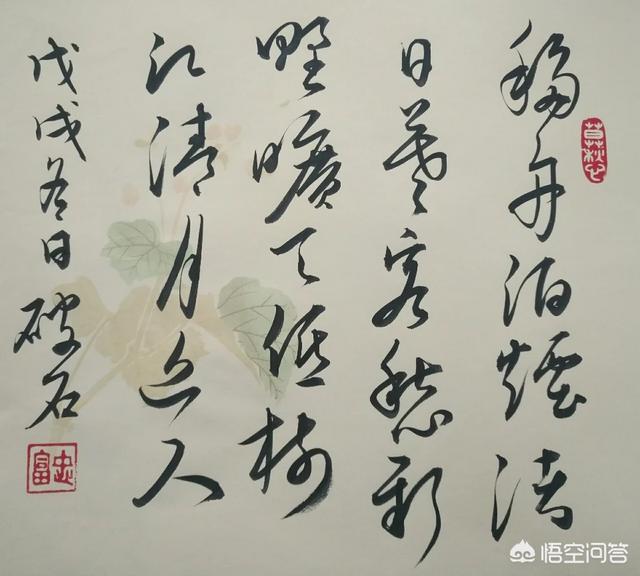 移舟泊煙渚
日暮客愁新
野曠天低樹
江清月近人
戊戌冬日破石
富忠
悟空问答